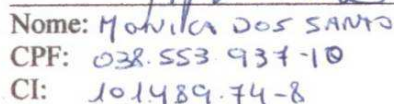 Nome: MONICA DOS SANTO
CPF: 038.553.937-10
CI: 101.489.74-8